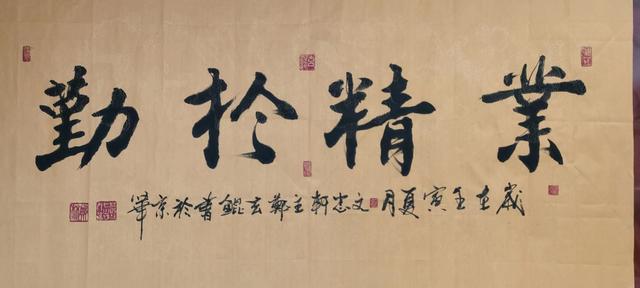 業精於勤
歲在壬寅夏月文志軒主鄭玄鯤書於京華